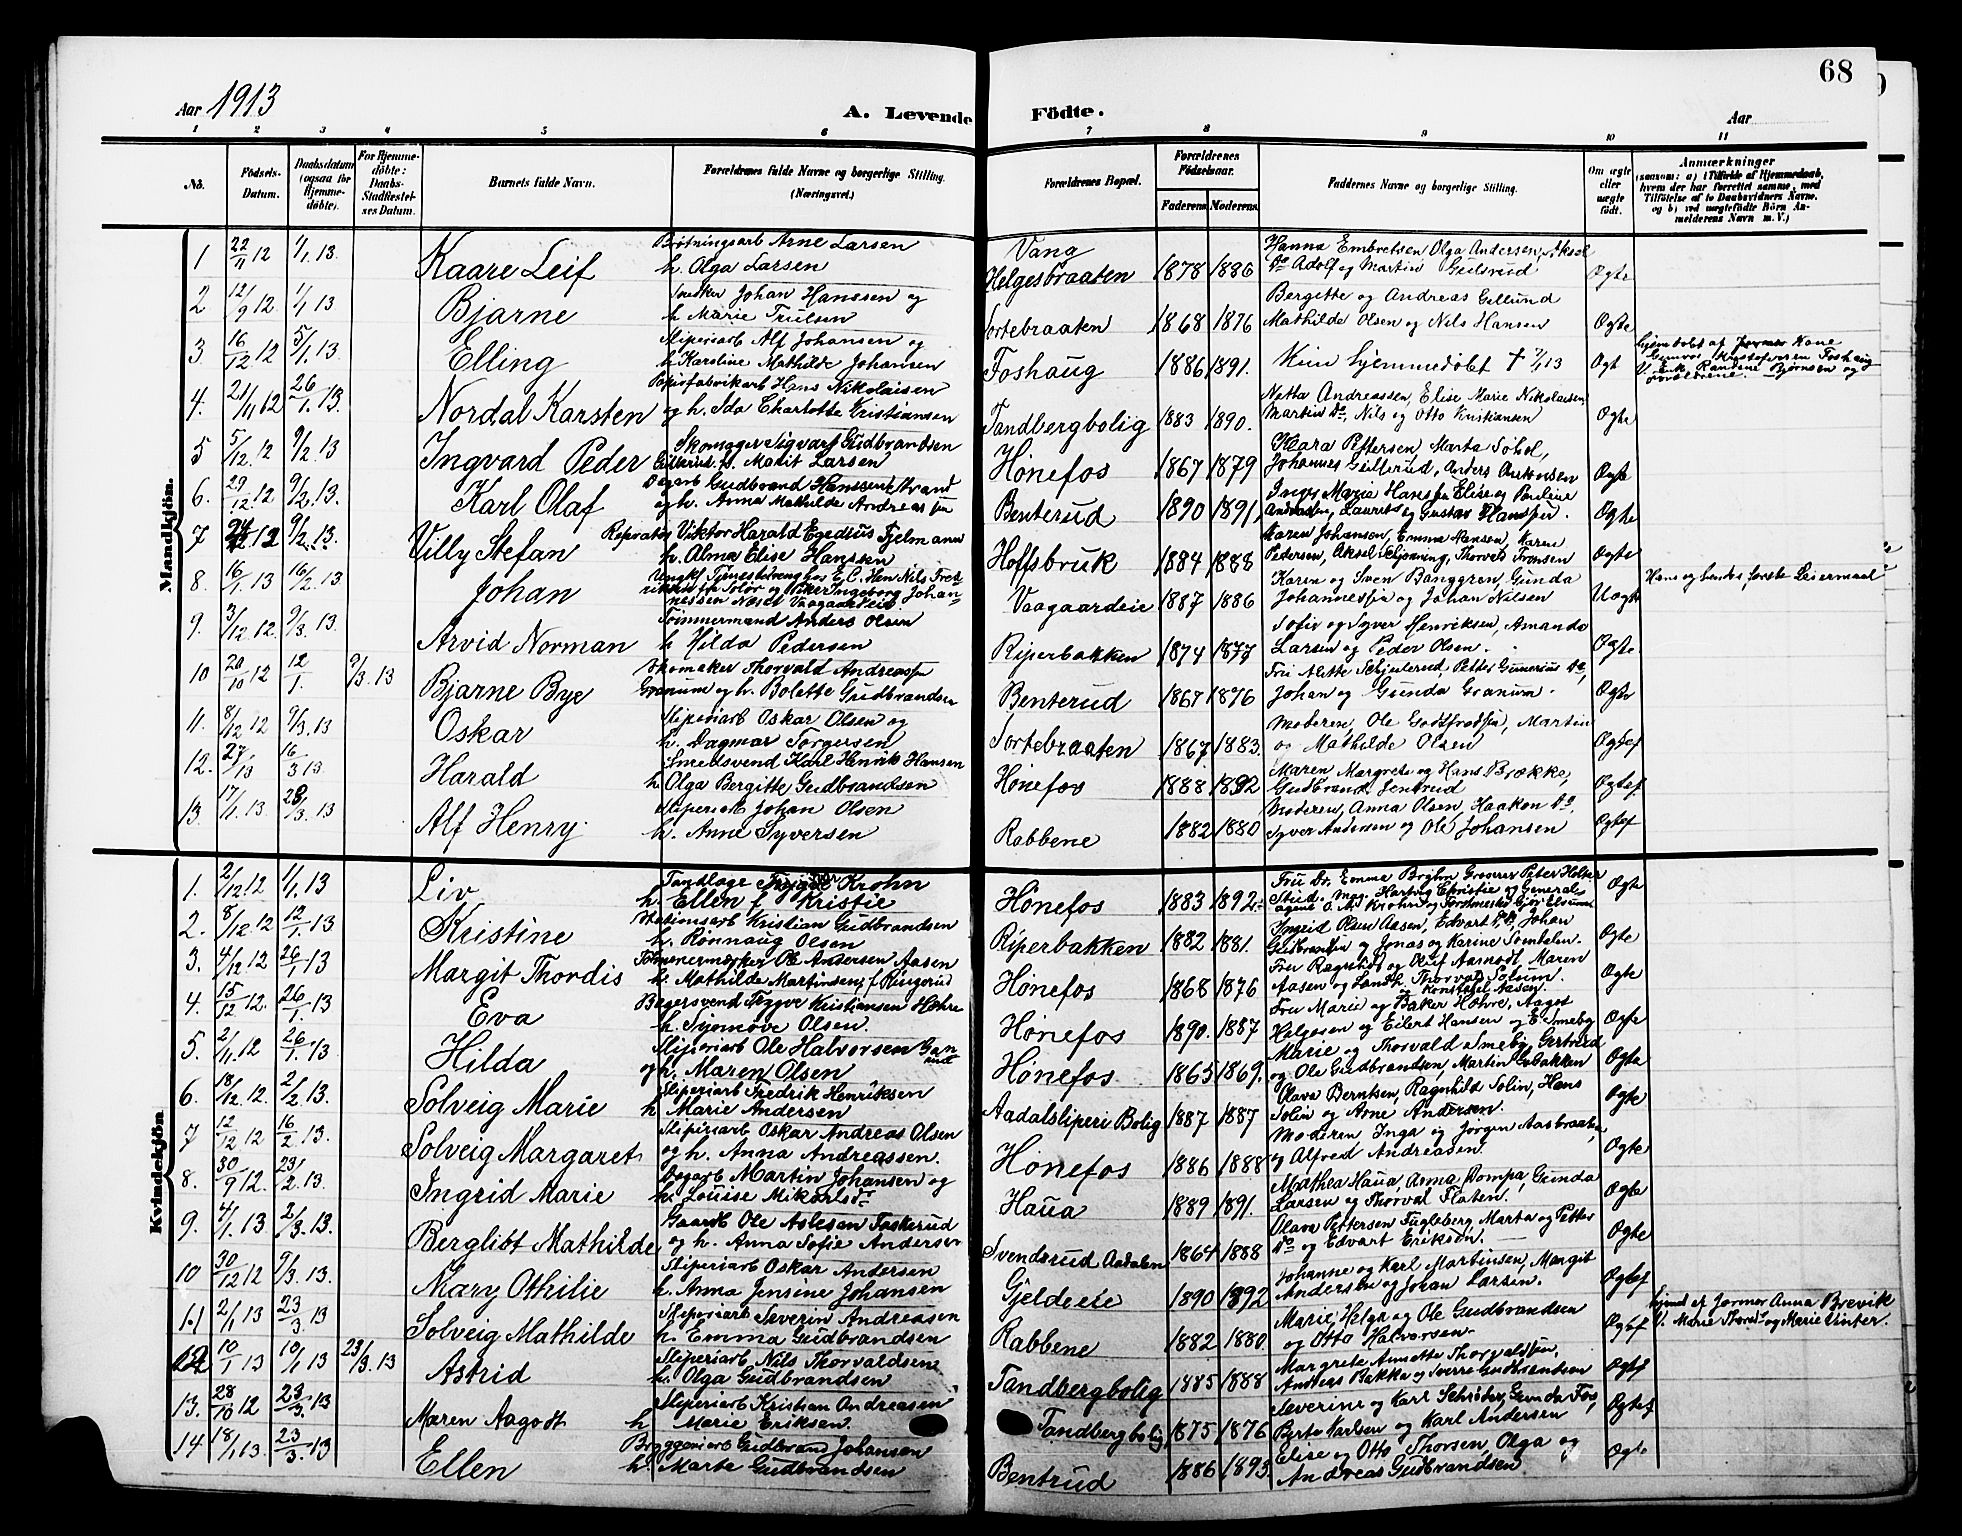 68
Aar 1913
A. Levende
Födte.
Aar
1 2 3 4 5 6 7 8 9 10 11
No. Födsels-Datum. Daabsdatum (ogsaa for Hjemme-döbte). For Hjemme-döbte: Daabs-Stadfæstel-ses Datum. Barnets fulde Navn. Forældrenes fulde Navne og borgerlige Stilling. (Næringsvei.) Forældrenes Bopæl. Forældrenes Födselsaar. Faderens Moderens Faddernes Navne og borgerlige Stilling. Om ægte eller uægte födt. Anmærkninger (saasom: a) i Tilfælde af Hjemmedaab, hvem der har forrettet samme, med Tilföielse af to Daabsvidners Navne. og b) ved uægtefödte Börn An-melderens Navn m. V.)
Mandkjön.
1 22/11 12 1/1 13. Kaare Leif Brötningsarb Arne Larsen
h. Olga Larsen Vang Helgesbraaten 1878 1886 Hanna Embretsen, Olga Andersen, Aksel
Do Adolf og Martin Gulsrud Ægte
2 12/9 12. 1/1 13 Bjarne Snedker Johan Hanssen og
h. Marie Trulsen Sortebraaten 1868 1876 Bergitte og Andreas Gullund
Mathilde Olsen og Nils Hansen Ægte
3 16/12 12 5/1 13. Elling Sliperiarb Alf Johansen og
h. Karoline Mathilde Johansen Foshaug 1886 1891. Kun hjemmedøbt † 7/1 13 Ægt hjemdøbt af Jormor Kone
4. 21/11 12 26/1. 13. Nordal Karsten Papirfabrikarb Hans Nikolaisen
og h. Ida Charlotte Kristiansen Tandbergbolig 1883 1890. Netta Andreassen, Elise Marie Nikolaisen
Martin Do, Nils og Otto Kristiansen Ægte
5 5/12. 12 9/2. 13. Ingvard Peder Skomager Sigvart Gudbrandsen
h. Marit Larsen Hønefos 1867 1879 Klara Pettersen, Marta Sohol,
Johannes Ægte
6. 29/12. 12 9/2. 13. Karl Olaf Gudbrand Hanssen Strand
og h. Anna Mathilde Andreassen Benterud 1890 1891, Inger Marie Hanssen Elise og Pauline
Laurits og Gustav Hanssen. Ægte
7 9/2. 13. Villy Stefan Reparatør Viktor Harald Egedius Fjelmann
h. Alma Elise Hansken Hoffsbruk 1884 1888 Karen Johansen, Emma Hansen, Karen
Pedersen, Aksel Schjønning, Thorvald Fronsen Ægte
8 16/1. 13 16/2. 13 Johan Vaagaardeie 1887 1886 Karen og Sven Banggren, Gunda
Johannessen og Johan Nilsen Uægte Hans og hendes første Leiermaal
9. 3/12. 12. 9/3. 13. Arvid Norman Tømmermand Anders Olsen
h Hilda Pedersen Riperbakken 1874 1877 Sofie og Syver Henriksen, Amanda
Larsen og Peder Olsen. Ægte
10 20/10 12 12/1. 9/3. 13 Bjarne Bye Skomaker Thorvald Andreassen
Granum og h. Bolette Gudbrandsen Benterud 1867 1876 Fru Alette Schjulerud, Petter Gunerius Do,
Johan og Gunda Granum. Ægte
11. 8/12 12 9/3. 13 Oskar Sliperiarb Oskar Olsen og
h. Dagmar Torgersen Sortebraaten 1867 1883. Moderen, Ole Godtfredsen, Martin
og Mathilde Olsen Ægtef
12. 27/10 16/3 13. Harald Smedsvend Karl Henrik Hansen
h Olga Bergitte Gudbrandsen Hønefos 1888 1892 Maren Margrete og Hans Brække,
Gudbrand Ægtef
13. 17/1. 13 28/3. 13 Alf Henry. Sliperiarb Johan Olsen
h. Anne Syversen Rabbene 1882 1880 Moderen, Anna Olsen, Haakon Do,
Syver Andersen og Ole Johansen Ægtef
Kvindekjön
1. 2/12. 12 1/1 13 Liv Tandlæge Krohn
h. Ellen f Kristie Hønefos 1883 1892. Fru Dr. Emma Grosserer Peter Holter
Stud. Hartvig Christie og General-
agent O. M. Krohn og Forstmester Ægte
2. 8/12. 12 12/1. 13 Kristine Stationsarb Kristian Gudbrandsen
h. Rønnaug Olsen Riperbakken 1882 1881. Ingrid Olsen Aasen, Edvart Do, Johan
Gudbrandsen og Jonas og Karine Somdalen. Ægte
3. 4/12 12 26/1 13 Margit Thordis Tømmermester Ole Andersen Aasen
h. Mathilde Martinsen, f Ringerud Hønefos 1868 1876 Fru Ragnhild og Oluf Aamodt, Maren
Aasen og Landh. Thorvald Solum.
Konstabel Aasen. Ægte
4. 15/12 12. 26/1. 13 Eva Bagersvend Trygve Kristiansen Hæhre
h. Synnøve Olsen. Hønefos 1890. 1887 Fru Marie og Baker Hæhre, Aagot
Helgesen og Eilert Hansen og E. Smeby Ægte
5. 2/11. 12 26/1. 13 Hilda Sliperiarb Ole Halvorsen
og h. Maren Olsen Hønefos 1863 1869. Marie og Thorvald Smeby, Gertrud
og Ole Gudbrandsen, Martin Ægte
6. 18/12. 12. 2/2. 13. Solveig Marie Sliperiarb Fredrik Henriksen
h Marie Andersen Aadalsliperi Bolig 1887 1887 Olava Berntsen, Ragnhild Solin, Hans
Solin og Arne Andersen. Ægte
7 12/12 12 16/2. 13. Solveig Margaret Sliperiarb Oskar Andreas Olsen
og h. Anna Andreassen. Hønefos 1886 1888 Moderen Inga og Jørgen Aasbraaten,
og Alfred Andreasen. Ægte
8. 30/9 12. 23/2. 13. Ingrid Marie Dagarb Martin Johansen og
h. Louise Haua 1889 1891. Mathea Haua, Anna Dompa, Gunda
Larsen og Thorval Flaten. Ægte
9. 4/1. 13 2/3. 13. Berglibt Mathilde Gaardb Ole Aslesen Foskerud
og h. Anna Sofie Andersen Svendsrud Aadalen 1864 1888 Olava Pettersen Fugleberg Marta og Petter
Do og Edvart Eriksen. Ægte
10 30/12 12 9/3. 13. Mary Othilie Sliperiarb Oskar Andersen
h. Anna Jensine Johansen Gjeldeeie 1890 1892 Johanne og Karl Martinsen, Margit
Andersen og Johan Larsen. Ægtef
11 2/1 13 23/3. 13 Solveig Mathilde Sliperiarb Severin Andreasen
h. Emma Gudbrandsen Rabbene 1882 1880. Marie, Helga og Ole Gudbrandsen
og Otto Halvorsen. Ægtef hjemd af Jormor Anna Brevik
V. Marie Thoresen og Marie Vinter.
12 10/1 13 10/1 13 23/3. 13 Astrid Sliperiarb Nils Thorvaldsen
h. Olga Gudbrandsen Tandbergbolig 1885 1888 Margrete Annette Thorvaldsen,
Andreas Bakka og Sverre Gudbrandsen Ægtef
13. 28/10 12 23/3. 13 Maren Aagodt Sliperiarb Kristian Andreasen
h Marie Eriksen. Tandbergbolig 1875 1876 Severine og Karl Schrøder, Gunda Fos,
Berte Karlsen og Karl Andersen Ægtef
14 18/1 13. 23/3. 13 Ellen Bryggeriarb Gudbrand Johansen
h. Marte Gudbrandsen Bentrud 1886 1893. Elise og Otto Thorsen, Olga og
Andreas Gudbrandsen Ægte